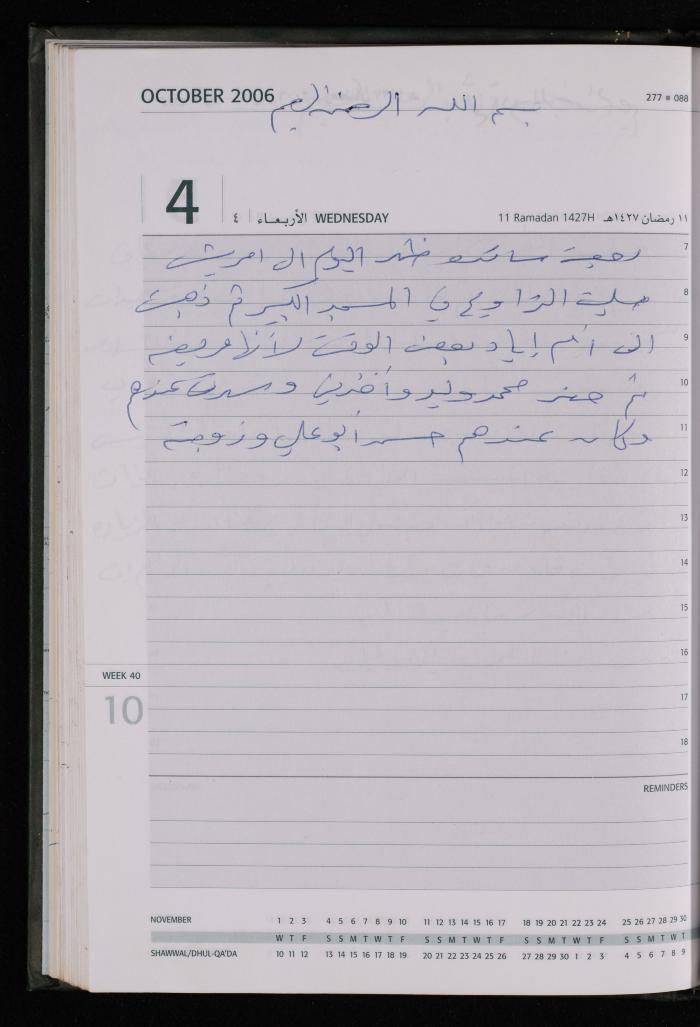 OCTOBER 2006
بسم الله الرحمن الرحيم
277 ■ 088
4
٤ الأربعاء WEDNESDAY
11 Ramadan 1427H ١١ رمضان ١٤٢٧هـ
7
ظهر اليوم الى
8
صليت التراويح في المسجد الكبير ثم ذهبت
9
الى أم إياد بعض الوقت لأنها مريضة
10
ثم حضر محمد وليد وآخرين وسهرت عندهم
11
وكان عندهم حسن أبو علي وزوجته
12
13
14
15
16
17
18
WEEK 40
10
REMINDERS
NOVEMBER 1 2 3 4 5 6 7 8 9 10 11 12 13 14 15 16 17 18 19 20 21 22 23 24 25 26 27 28 29 30
W T F S S M T W T F S S M T W T F S S M T W T F S S M T W T
SHAWWAL/DHUL-QA'DA 10 11 12 13 14 15 16 17 18 19 20 21 22 23 24 25 26 27 28 29 30 1 2 3 4 5 6 7 8 9